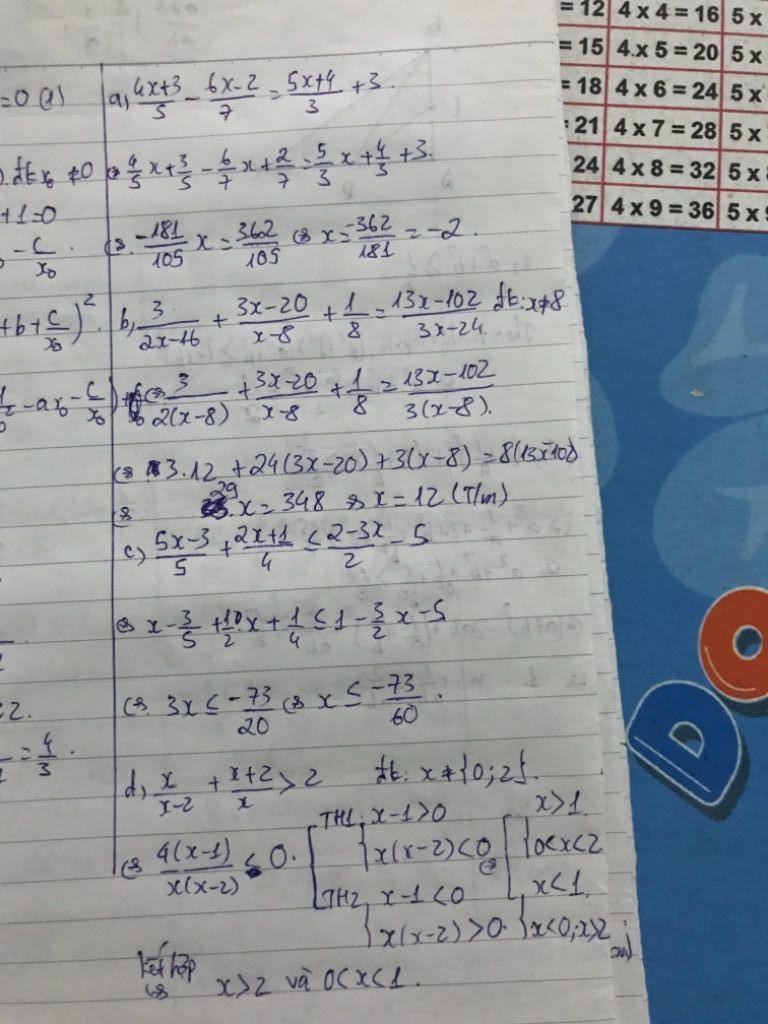 = 12 4 x 4 = 16 5 x
= 15 4 x 5 = 20 5 x
= 18 4 x 6 = 24 5 x
21 4 x 7 = 28 5 x
24 4 x 8 = 32 5 x
27 4 x 9 = 36 5 x
=0 (1)
đk x₀ ≠0
+1=0
- c/x₀
+b+c/x₀)²
-ax₀-c/x₀)
2.
=4/3.
a, (4x+3)/5 - (6x-2)/7 = (5x+4)/3 +3.
⇔ 4/5 x+3/5 - 6/7 x+2/7=5/3 x+4/3+3.
⇔. -181/105 x = 362/105 ⇔ x=-362/181 = -2.
b, 3/(2x-16) + (3x-20)/(x-8) + 1/8 = (13x-102)/(3x-24). đk: x≠8
⇔ 3/(2(x-8)) + (3x-20)/(x-8) + 1/8 = (13x-102)/(3(x-8)).
⇔ 3.12 + 24(3x-20)+3(x-8)=8(13x-102)
⇔ 29.x = 348 ⇔ x = 12 (T/m)
c, (5x-3)/5 + (2x+1)/4 ≤ (2-3x)/2 - 5
⇔ x-3/5 + 1/2 x + 1/4 ≤ 1-3/2 x -5
⇔. 3x ≤ -73/20 ⇔ x ≤ -73/60.
d, x/(x-2) + (x+2)/x > 2 đk: x≠{0;2}.
⇔ 4(x-1)/(x(x-2)) < 0. [TH1: {x-1>0 [{x>1.
{x(x-2)<0 ⇔ {0<x<2
[TH2 {x-1<0 [{x<1.
{x(x-2)>0. {x<0;x>2
kết hợp
⇔ x>2 và 0<x<1.
DO